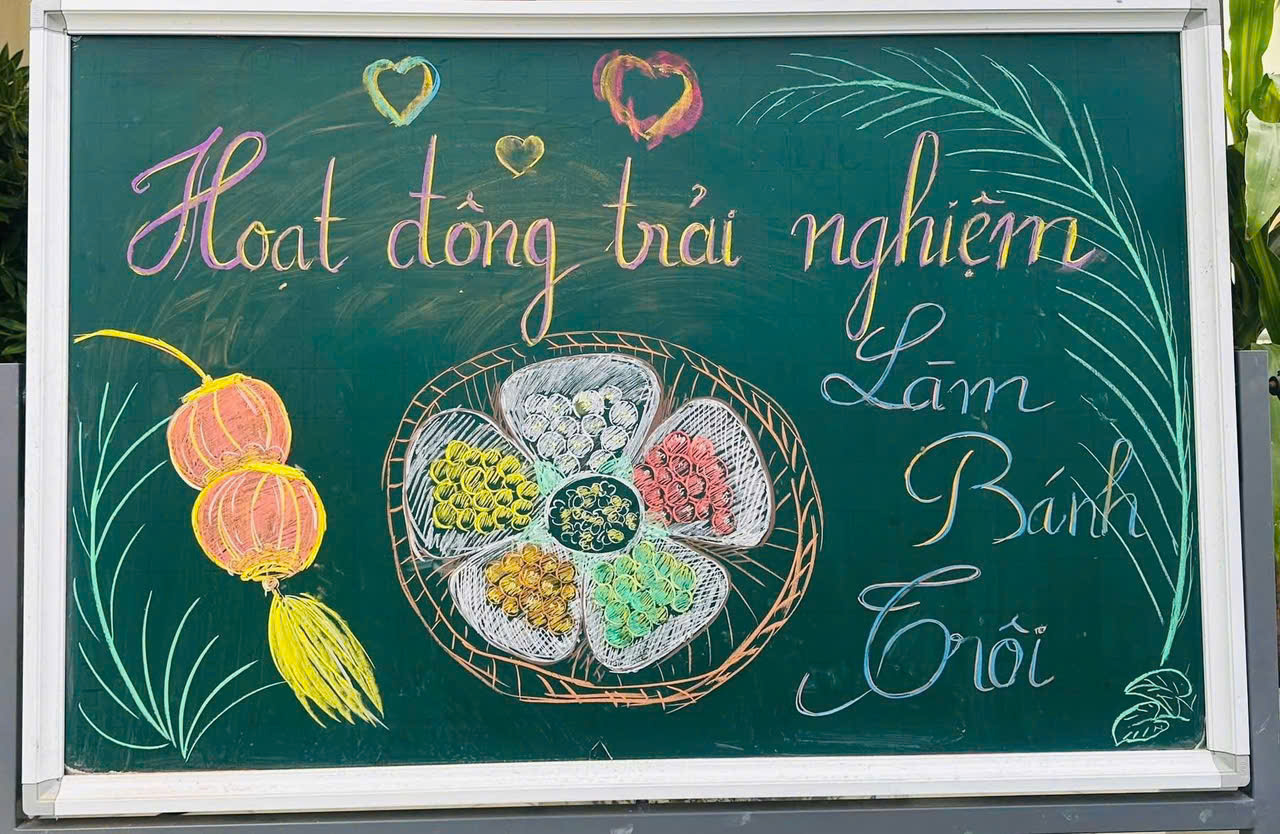 Hoạt động trải nghiệm
Làm
Bánh
Trôi